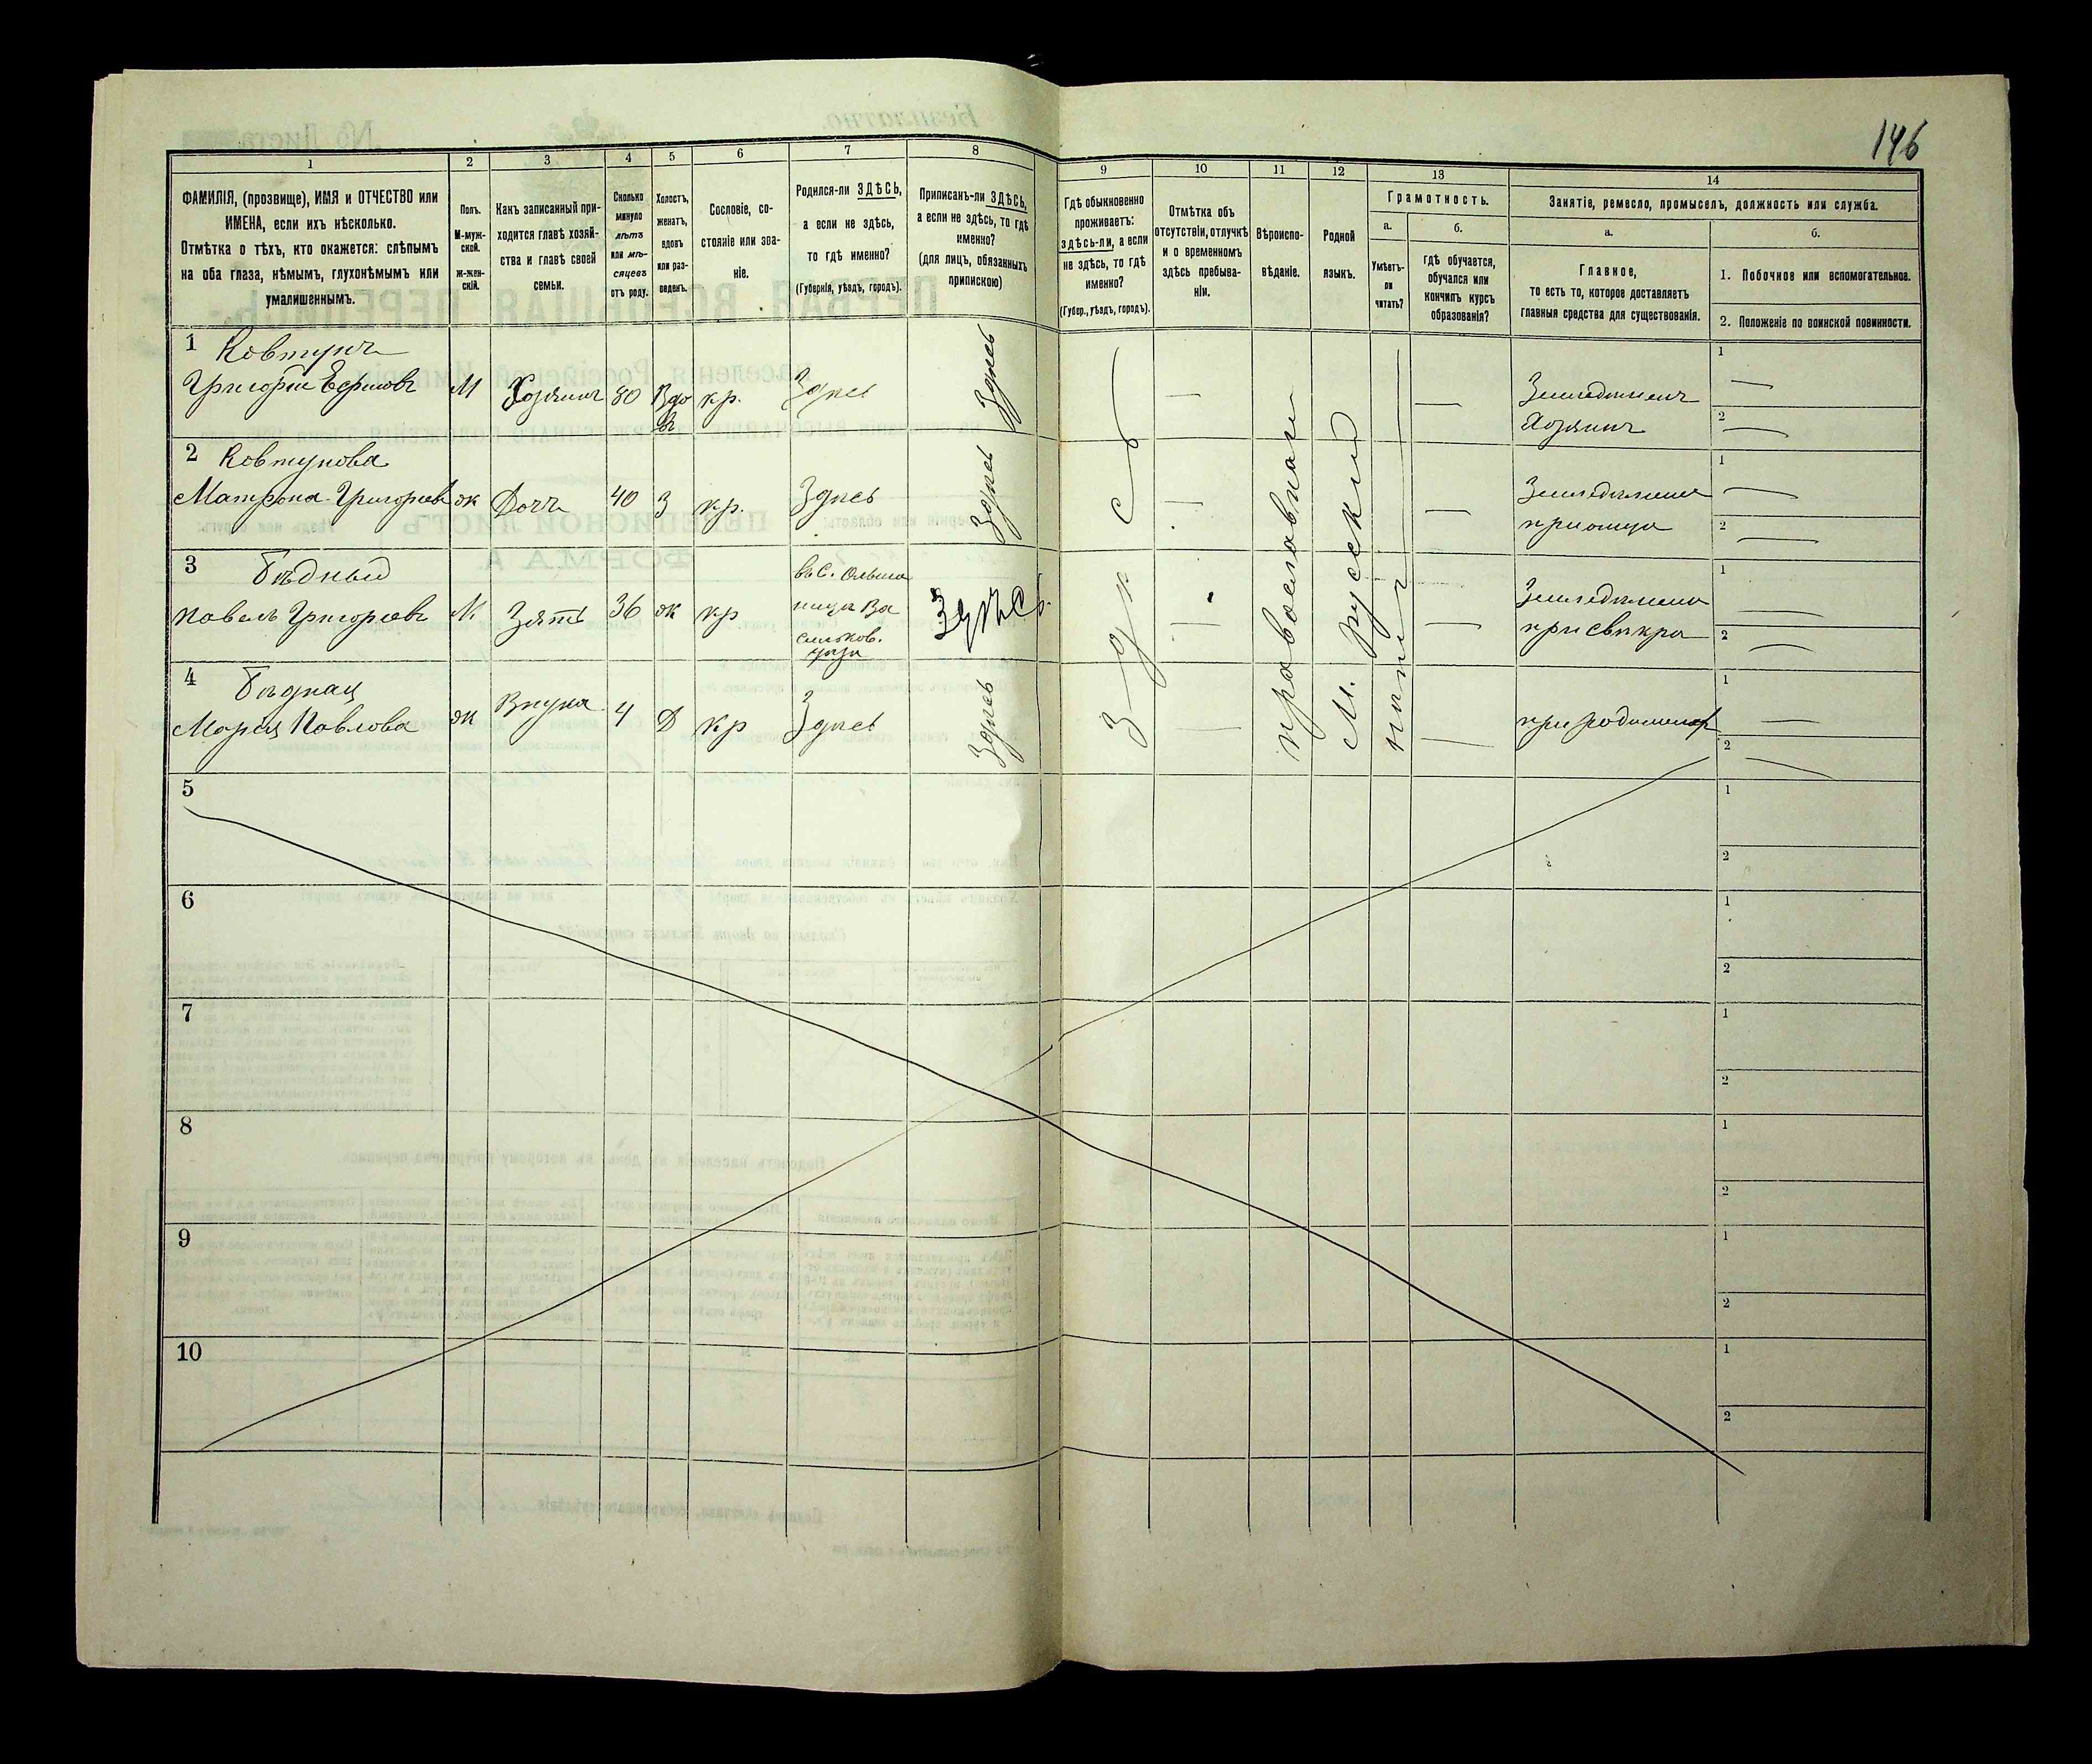 146
1
2
3
4
5
6
7
8
9
10
11
12
13
14
ФАМИЛІЯ, (прозвище), ИМЯ и ОТЧЕСТВО или
ИМЕНА, если ихъ нѣсколько.
Отмѣтка о тѣхъ, кто окажется: слѣпымъ
на оба глаза, нѣмымъ, глухонѣмымъ или
умалишеннымъ.
Полъ.
М-муж-
ской.
Ж-жен-
скій.
Какъ записанный при-
ходится главѣ хозяй-
ства и главѣ своей
семьи.
Сколько
минуло
лѣтъ
или мѣ-
сяцевъ
отъ роду.
Холостъ,
женатъ,
вдовъ
или раз-
веденъ.
Сословіе, со-
стояніе или зва-
ніе.
Родился-ли ЗДѢСЬ,
а если не здѣсь,
то гдѣ именно?
(Губернія, уѣздъ, городъ).
Приписанъ-ли ЗДѢСЬ,
а если не здѣсь, то гдѣ
именно?
(для лицъ, обязанныхъ
припискою)
Гдѣ обыкновенно
проживаетъ:
здѣсь-ли, а если
не здѣсь, то гдѣ
именно?
(Губер., уѣздъ, городъ).
Отмѣтка объ
отсутствіи, отлучкѣ
и о временномъ
здѣсь пребыва-
ніи.
Вѣроиспо-
вѣданіе.
Родной
языкъ.
Грамотность.
а.
Умѣетъ-
ли
читать?
б.
гдѣ обучается,
обучался или
кончилъ курсъ
образованія?
Занятіе, ремесло, промыселъ, должность или служба.
а.
Главное,
то есть то, которое доставляетъ
главныя средства для существованія.
б.
1. Побочное или вспомогательное.
2. Положеніе по воинской повинности.
1 Ковтунъ
Григорій Ефимовъ
М
Хозяинъ
80
Вдо
въ
кр.
Здѣсь
Здѣсь
Земледѣлецъ
Хозяинъ
1
2
2 Ковтунова
Матрона Григорьев
ж
Дочь
40
З
кр.
Здѣсь
Здѣсь
при отцѣ
1
2
3 Бѣдный
Павелъ Григорьевъ
М.
Зять
36
ж
кр
въ С. Ольша
ница Ва
сильков.
уѣзда
Здѣсь.
при свекрѣ
1
2
4 Бѣдная
Марія Павлова
ж
Внука
4
Д
кр
Здѣсь
Здѣсь
при родителях
1
2
Здѣсь
православная
М. русскій
нѣтъ
5
1
2
6
1
2
7
1
2
8
1
2
9
1
2
10
1
2